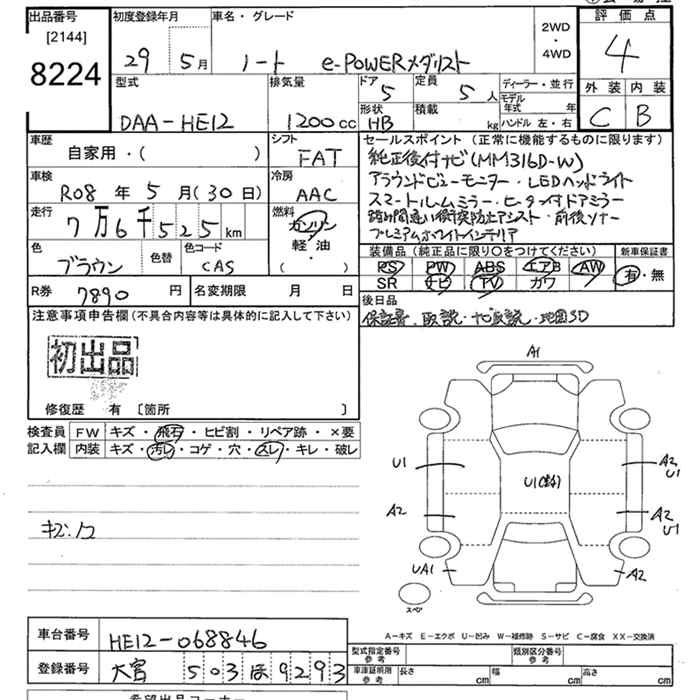 出品番号
[2144]
8224
初度登録年月
29 5月
車名・グレード
ノート e-POWERメダリスト
2WD
・
4WD
評価点
4
型式
DAA-HE12
排気量
1200cc
ドア
5
定員
5人
形状
HB
積載
kg
ディーラー・並行
モデル年式 年
ハンドル 左・右
外装 内装
C B
車歴
自家用・( )
シフト
FAT
車検
R08年5月(30日)
冷房
AAC
走行
7万6千525km
燃料
ガソリン
軽・油
( )
色
ブラウン
色替
色コード
CAS
セールスポイント(正常に機能するものに限ります)
純正後付ナビ(MM316D-W)
アラウンドビューモニター・LEDヘッドライト
スマートルームミラー・ヒーター付ドアミラー
踏み間違い衝突防止アシスト・前後ソナー
プレミアムホワイトインテリア
装備品(純正品に限り○をつけてください)
PS PW ABS エアB AW
SR ナビ TV カワ
新車保証書
有・無
R券
7890円
名変期限 月 日
後日品
保証書、取説・ナビ取説・地図SD
注意事項申告欄(不具合内容等は具体的に記入して下さい)
初出品
修復歴 有 [箇所 ]
検査員記入欄
FW キズ・飛石・ヒビ割・リペア跡・×要
内装 キズ・汚レ・コゲ・穴・スレ・キレ・破レ
A1
U1
A2
U1
A2
A2
U1
UA1
A2
スペア
A-キズ E-エクボ U-凹み W-補修跡 S-サビ C-腐食 XX-交換済
車台番号
HE12-068846
登録番号
大宮 503ほ9293
型式指定番号
参考
類別区分番号
参考
車庫証明用
参考
長さ cm
幅 cm
高さ cm